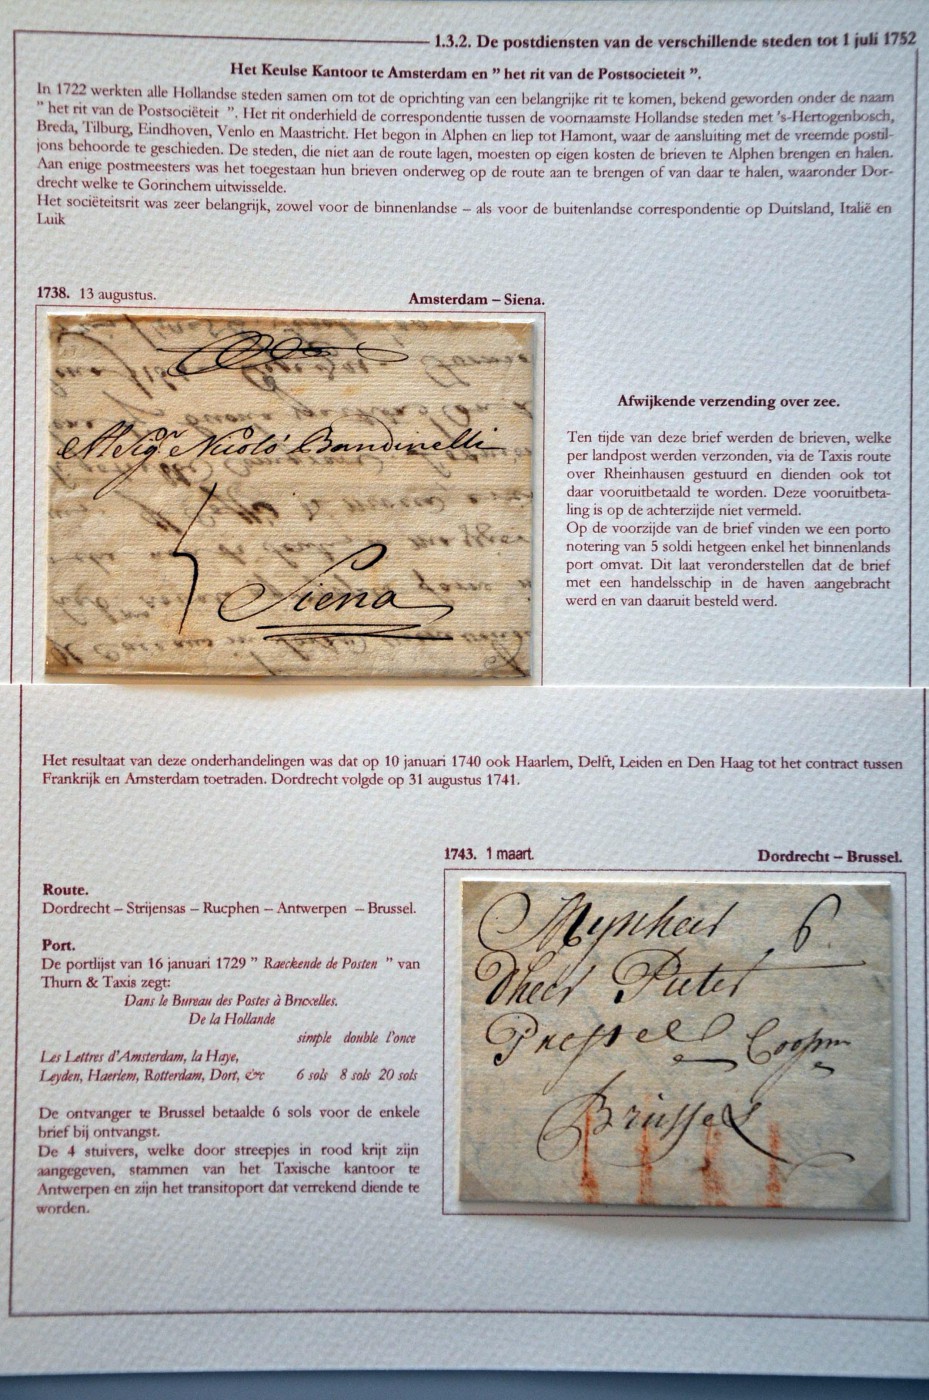 1.3.2. De postdiensten van de verschillende steden tot 1 juli 1752
Het Keulse Kantoor te Amsterdam en " het rit van de Postsocieteit ".
In 1722 werkten alle Hollandse steden samen om tot de oprichting van een belangrijke rit te komen, bekend geworden onder de naam
" het rit van de Postsociëteit ". Het rit onderhield de correspondentie tussen de voornaamste Hollandse steden met 's-Hertogenbosch,
Breda, Tilburg, Eindhoven, Venlo en Maastricht. Het begon in Alphen en liep tot Hamont, waar de aansluiting met de vreemde postil-
jons behoorde te geschieden. De steden, die niet aan de route lagen, moesten op eigen kosten de brieven te Alphen brengen en halen.
Aan enige postmeesters was het toegestaan hun brieven onderweg op de route aan te brengen of van daar te halen, waaronder Dor-
drecht welke te Gorinchem uitwisselde.
Het sociëteitsrit was zeer belangrijk, zowel voor de binnenlandse – als voor de buitenlandse correspondentie op Duitsland, Italië en
Luik
1738. 13 augustus.
Amsterdam – Siena.
Nicoló Bandinelli
Siena
Afwijkende verzending over zee.
Ten tijde van deze brief werden de brieven, welke
per landpost werden verzonden, via de Taxis route
over Rheinhausen gestuurd en dienden ook tot
daar vooruitbetaald te worden. Deze vooruitbeta-
ling is op de achterzijde niet vermeld.
Op de voorzijde van de brief vinden we een porto
notering van 5 soldi hetgeen enkel het binnenlands
port omvat. Dit laat veronderstellen dat de brief
met een handelsschip in de haven aangebracht
werd en van daaruit besteld werd.
Het resultaat van deze onderhandelingen was dat op 10 januari 1740 ook Haarlem, Delft, Leiden en Den Haag tot het contract tussen
Frankrijk en Amsterdam toetraden. Dordrecht volgde op 31 augustus 1741.
Route.
Dordrecht – Strijensas – Rucphen – Antwerpen – Brussel.
Port.
De portlijst van 16 januari 1729 " Raeckende de Posten " van
Thurn & Taxis zegt:
Dans le Bureau des Postes à Bruxelles.
De la Hollande
simple double l'once
Les Lettres d'Amsterdam, la Haye,
Leyden, Haerlem, Rotterdam, Dort, &c 6 sols 8 sols 20 sols
De ontvanger te Brussel betaalde 6 sols voor de enkele
brief bij ontvangst.
De 4 stuivers, welke door streepjes in rood krijt zijn
aangegeven, stammen van het Taxische kantoor te
Antwerpen en zijn het transitoport dat verrekend diende te
worden.
1743. 1 maart.
Dordrecht – Brussel.
Mijnheer 6
Dheer Pieter
Coopm
Brussel